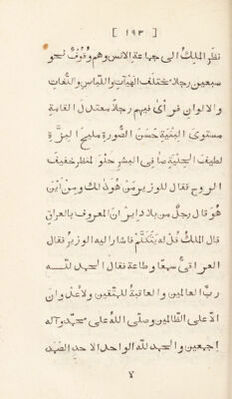 [ ١٩٣ ]
نظر الملك الى جماعة الانس وهم وقوف نحو
سبعين رجلا مختلف الهيّات واللباس واللغات
والالوان فرأى فيهم رجلا معتدل القامة
مستوى البنية حسن الصورة مليح البزّة
لطيف الحلية صافى البشر حلو المنظر خفيف
الروح فقال للوزير من هو ذلك ومن اين
هو قال رجل من بلاد ايران المعروف بالعراق
قال الملك قل له يتكلّم فاشار اليه الوزير فقال
العراقىّ سمعا وطاعة فقال الحمد للـــه
ربّ العالمين والعاقبة للمتّقين ولا عدوان
الّا على الظالمين وصلّى الله على محمّد وآله
اجمعين والحمد للّه الواحد الاحد الصمد